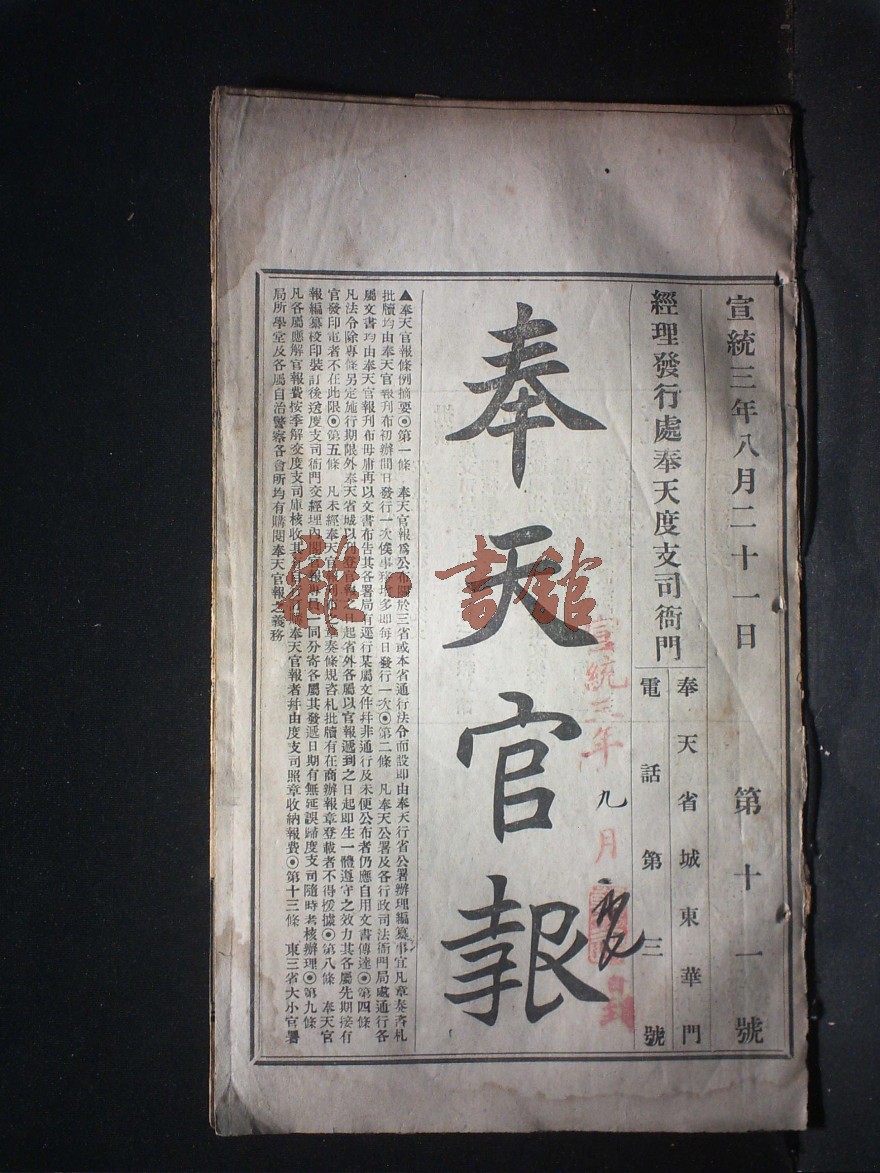 宣統三年八月二十一日 第十一號
經理發行處奉天度支司衙門
奉天省城東華門
電話第三號
奉天官報
宣統三年九月初 日到
▲奉天官報條例摘要◉第一條 奉天官報爲公布關於三省或本省通行法令而設即由奉天行省公署辦理編纂事宜凡章奏咨札
批牘均由奉天官報刊布初辦間日發行一次俟事務增多即每日發行一次◉第二條 凡奉天公署及各行政司法衙門局處通行各
屬文書均由奉天官報刊布毋庸再以文書布告其各署局有逕行某屬文件幷非通行及未便公布者仍應自用文書傳達◉第四條
凡法令除專條另定施行期限外奉天省城以刊登官報之日起省外各屬以官報遞到之日起即生一體遵守之效力其各屬先期接有
官發印電者不在此限◉第五條 凡未經奉天官報 章奏條規咨札批牘有在商辦報章登載者不得援據◉第八條 奉天官
報編纂校印裝訂後送度支司衙門交經理內閣官報專員一同分寄各屬其發遞日期有無延誤歸度支司隨時考核辦理◉第九條
凡各屬應解官報費按季解交度支司庫核收其 奉天官報者幷由度支司照章收納報費◉第十三條 東三省大小官署
局所學堂及各屬自治警察各會所均有購閱奉天官報之義務
雅·書館